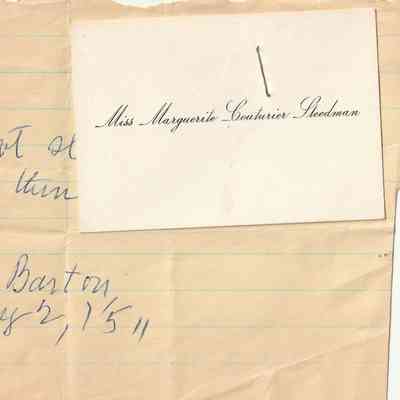 Miss Marguerite Couturier Steedman
ot
then
Barton
2, 15"